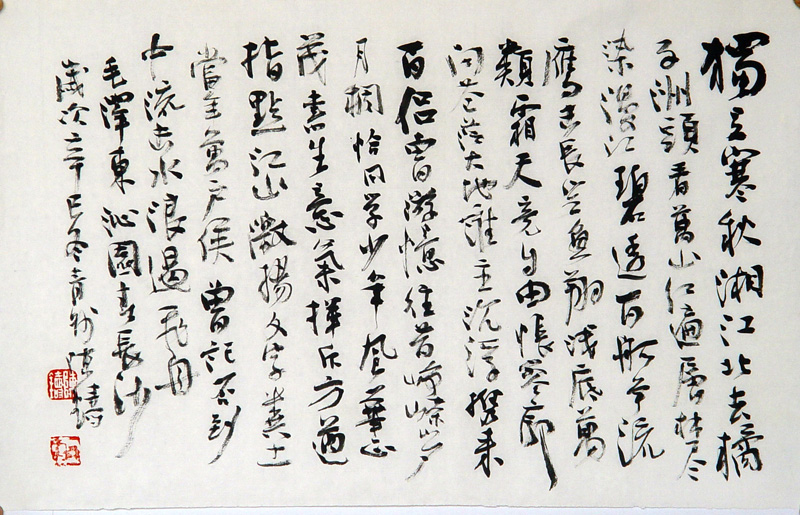 獨立寒秋湘江北去橘
子洲頭看萬山红遍層林尽
染漫江碧透百舸争流
鷹击長空魚翔浅底萬
類霜天竞自由悵寥廓
问苍茫大地誰主沉浮携来
百侣曾游憶往昔崢嶸岁
月稠恰同学少年風華正
茂書生意氣揮斥方遒
指點江山激揚文字糞土
當年萬户侯曾記否到
中流击水浪遏飞舟
毛澤東沁園春長沙
歲次辛巳冬